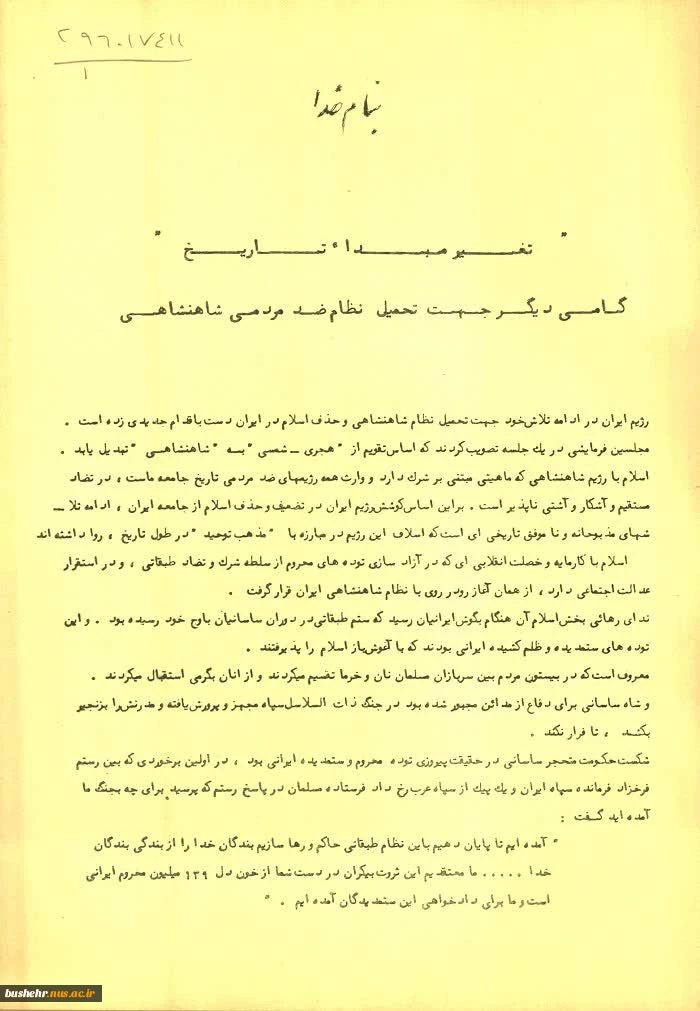 ۲۹۶۰۱۷۴۱۱
۱
بنام خدا
" تغـــیـر مبــــدا ٔ تــــاریـــخ "
گـامـی دیگـر جـهـت تحمیل نظام ضـد مردمـی شاهنشاهـی
رژیم ایران در ادامه تلاش خود جهت تحمیل نظام شاهنشاهی و حذف اسلام در ایران دست باقدام جدیدی زده است .
مجلسین فرمایشی در یک جلسه تصویب کردند که اساس تقویم از " هجری ـ شمسی " بـه " شاهنشاهـی " تبدیل یابد .
اسلام با رژیم شاهنشاهی که ماهیتی مبتنی بر شرک دارد و وارث همه رژیمهای ضد مردمی تاریخ جامعه ماست ، در تضاد
مستقیم و آشکار و آشتی ناپذیر است . براین اساس کوشش رژیم ایران در تضعیف و حذف اسلام از جامعه ایران ، ادامه تلا ـ
شهای مذبوحانه و نا موفق تاریخی ای است که اسلاف این رژیم در مبارزه با " مذهب توحید " در طول تاریخ ، روا داشته اند
اسلام با کارمایه و خصلت انقلابی ای که در آزاد سازی توده های محروم از سلطه شرک و تضاد طبقاتی ، و در استقرار
عدالت اجتماعی دارد ، از همان آغاز رودر روی با نظام شاهنشاهی ایران قرار گرفت .
ندای رهائی بخش اسلام آن هنگام بگوش ایرانیان رسید که ستم طبقاتی در دوران ساسانیان باوج خود رسیده بود . و این
توده های ستمدیده و ظلم کشیده ایرانی بودند که با آغوش باز اسلام را پذیرفتند .
معروف است که در بیستون مردم بین سربازان مسلمان نان و خرما تقسیم میکردند و از آنان بگرمی استقبال میکردند .
و شاه ساسانی برای دفاع از مدائن مجبور شده بود در جنگ ذات السلاسل سپاه مجهز و پرورش یافته و مدرنش را بزنجیر
بکشد ، تا فرار نکند .
شکست حکومت متحجر ساسانی در حقیقت پیروزی توده محروم و ستمدیده ایرانی بود ، در اولین برخوردی که بین رستم
فرخزاد فرمانده سپاه ایران و یک پیک از سپاه عرب رخ داد فرستاده مسلمان در پاسخ رستم که پرسید برای چه بجنگ ما
آمده اید گـفت :
" آمده ایم تا پایان دهیم باین نظام طبقاتی حاکم و رها سازیم بندگان خدا را از بندگی بندگان
خدا ..... ما معتقدیم این ثروت بیکران در دست شما از خون دل ۱۳۹ میلیون محروم ایرانی
است و ما برای دادخواهی این ستمدیدگان آمده ایم . "
bushehr.nus.ac.ir